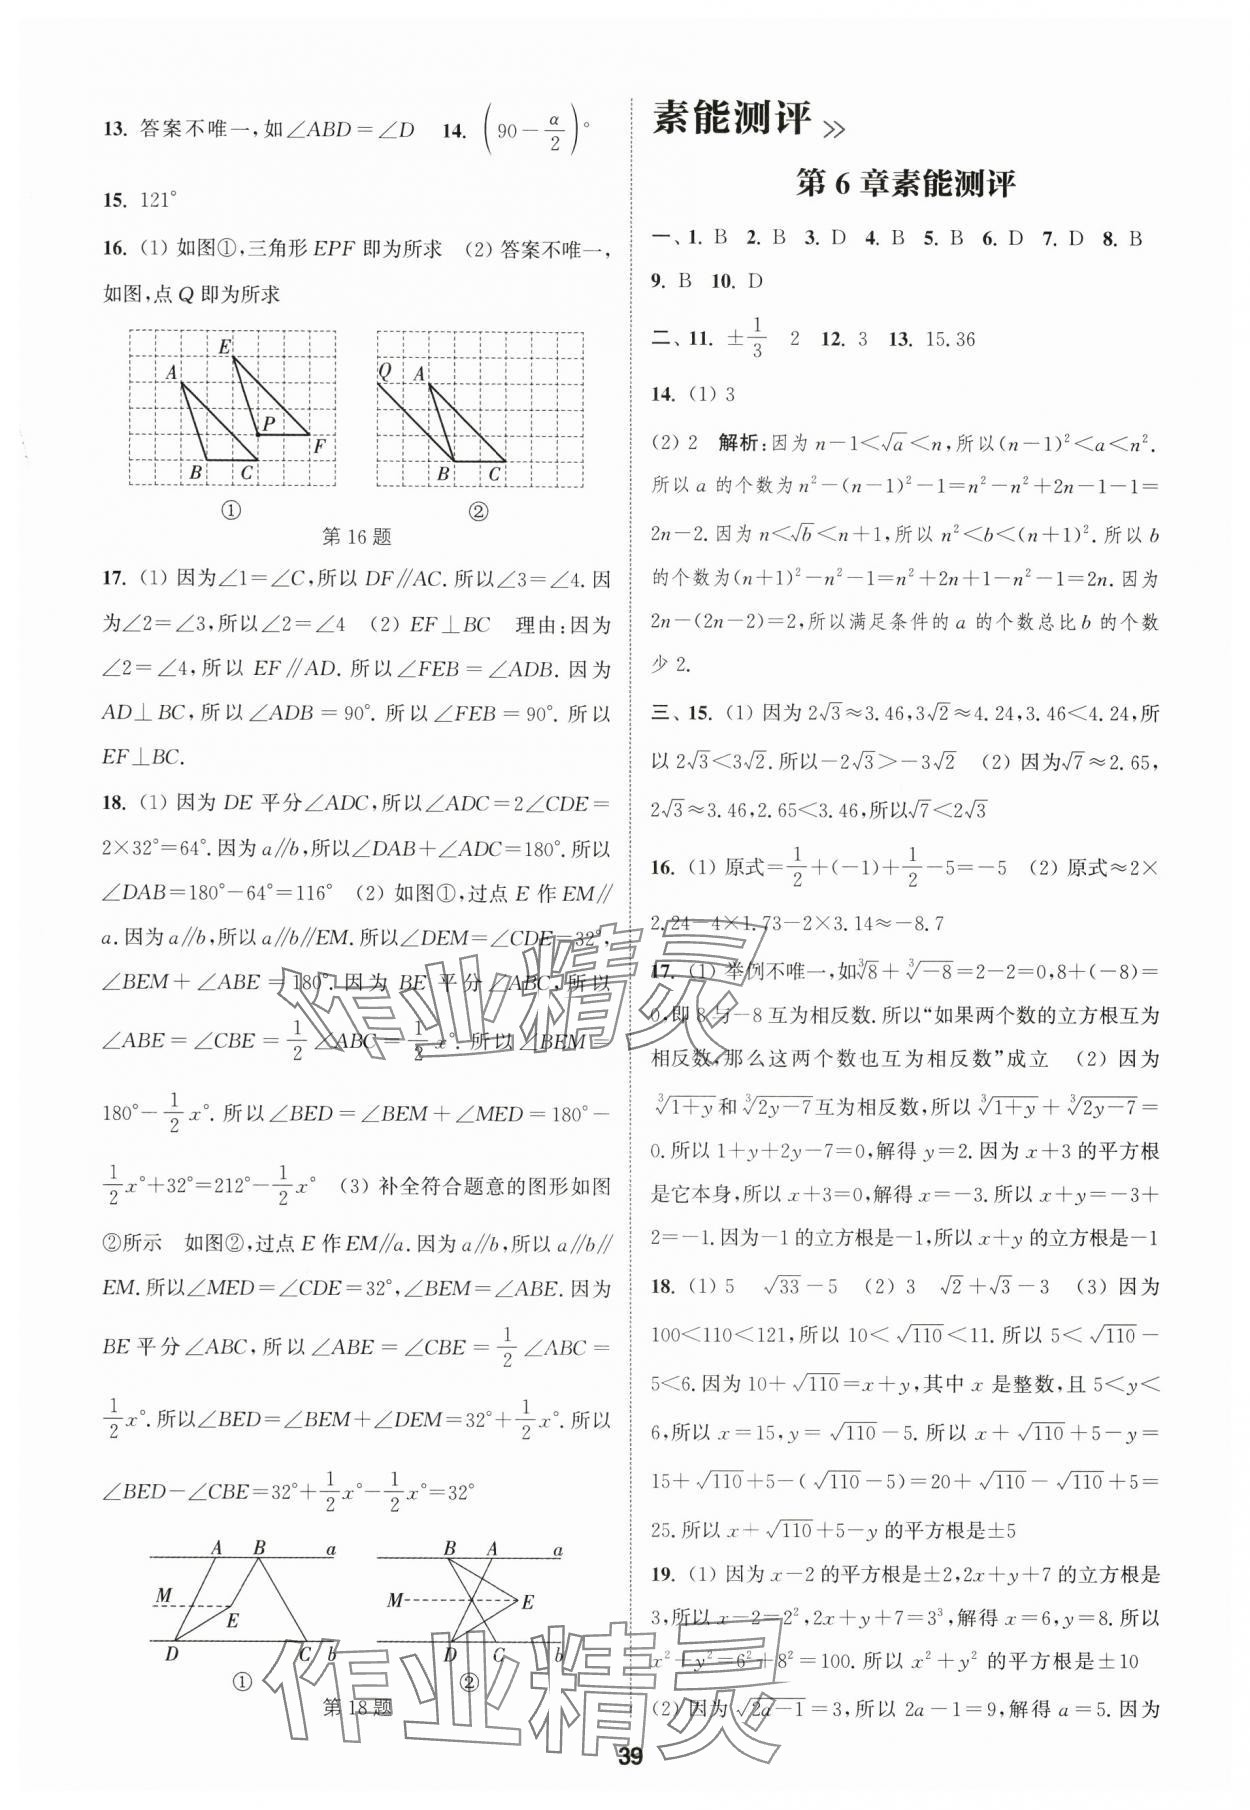 13. 答案不唯一,如∠ABD=∠D 14. (90-α/2)°
15. 121°
16. (1) 如图①,三角形EPF即为所求 (2) 答案不唯一,
如图,点Q即为所求
E
A
P
F
B
C
①
Q
A
B
C
②
第16题
17. (1) 因为∠1=∠C,所以DF∥AC.所以∠3=∠4.因
为∠2=∠3,所以∠2=∠4 (2) EF⊥BC 理由:因为
∠2=∠4,所以EF∥AD.所以∠FEB=∠ADB.因为
AD⊥BC,所以∠ADB=90°.所以∠FEB=90°.所以
EF⊥BC.
18. (1) 因为DE平分∠ADC,所以∠ADC=2∠CDE=
2×32°=64°.因为a∥b,所以∠DAB+∠ADC=180°.所以
∠DAB=180°-64°=116° (2) 如图①,过点E作EM∥
a.因为a∥b,所以a∥b∥EM.所以∠DEM=∠CDE=32°,
∠BEM+∠ABE=180°.因为BE平分∠ABC,所以
∠ABE=∠CBE=1/2∠ABC=1/2x°.所以∠BEM=
180°-1/2x°.所以∠BED=∠BEM+∠MED=180°-
1/2x°+32°=212°-1/2x° (3) 补全符合题意的图形如图
②所示 如图②,过点E作EM∥a.因为a∥b,所以a∥b∥
EM.所以∠MED=∠CDE=32°,∠BEM=∠ABE.因为
BE平分∠ABC,所以∠ABE=∠CBE=1/2∠ABC=
1/2x°.所以∠BED=∠BEM+∠DEM=32°+1/2x°.所以
∠BED-∠CBE=32°+1/2x°-1/2x°=32°
A B a
M
E
D C b
①
B A a
M E
D C b
②
第18题
素能测评
第6章素能测评
一、1. B 2. B 3. D 4. B 5. B 6. D 7. D 8. B
9. B 10. D
二、11. ±1/3 2 12. 3 13. 15.36
14. (1) 3
(2) 2 解析:因为n-1<√a<n,所以(n-1)²<a<n².
所以a的个数为n²-(n-1)²-1=n²-n²+2n-1-1=
2n-2.因为n<√b<n+1,所以n²<b<(n+1)².所以b
的个数为(n+1)²-n²-1=n²+2n+1-n²-1=2n.因为
2n-(2n-2)=2,所以满足条件的a的个数总比b的个数
少2.
三、15. (1) 因为2√3≈3.46,3√2≈4.24,3.46<4.24,所
以2√3<3√2.所以-2√3>-3√2 (2) 因为√7≈2.65,
2√3≈3.46,2.65<3.46,所以√7<2√3
16. (1) 原式=1/2+(-1)+1/2-5=-5 (2) 原式≈2×
2.24-4×1.73-2×3.14≈-8.7
17. (1) 举例不唯一,如∛8+∛-8=2-2=0,8+(-8)=
0,即8与-8互为相反数.所以“如果两个数的立方根互为
相反数,那么这两个数也互为相反数”成立 (2) 因为
∛(1+y)和∛(2y-7)互为相反数,所以∛(1+y)+∛(2y-7)=
0.所以1+y+2y-7=0,解得y=2.因为x+3的平方根
是它本身,所以x+3=0,解得x=-3.所以x+y=-3+
2=-1.因为-1的立方根是-1,所以x+y的立方根是-1
18. (1) 5 √33-5 (2) 3 √2+√3-3 (3) 因为
100<110<121,所以10<√110<11.所以5<√110-
5<6.因为10+√110=x+y,其中x是整数,且5<y<
6,所以x=15,y=√110-5.所以x+√110+5-y=
15+√110+5-(√110-5)=20+√110-√110+5=
25.所以x+√110+5-y的平方根是±5
19. (1) 因为x-2的平方根是±2,2x+y+7的立方根是
3,所以x-2=2²,2x+y+7=3³,解得x=6,y=8.所以
x²+y²=6²+8²=100.所以x²+y²的平方根是±10
(2) 因为√(2a-1)=3,所以2a-1=9,解得a=5.因为
作业精灵
作业精灵
39